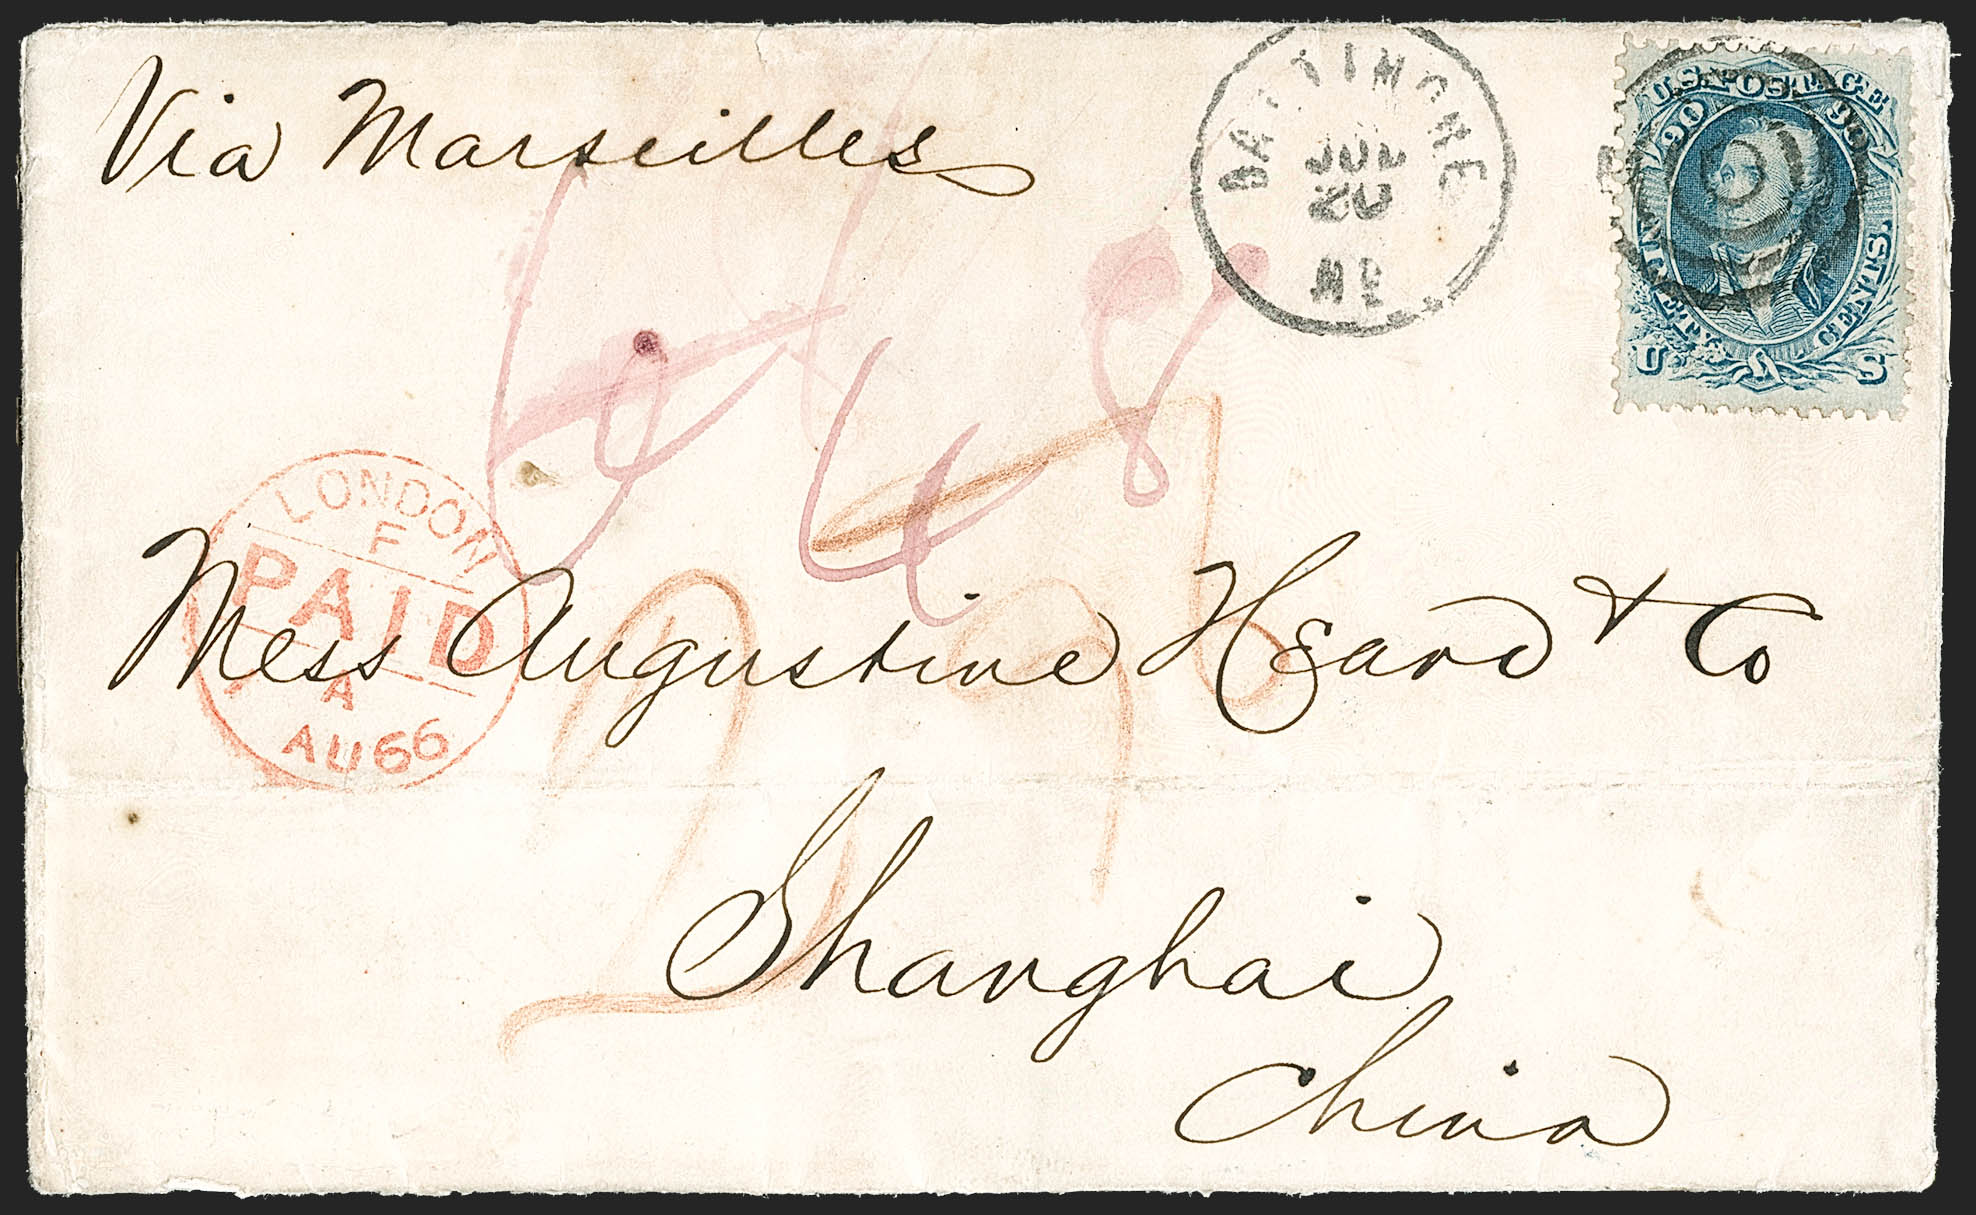 Via Marseilles
BALTIMORE
JUL
20
MD
U.S. POSTAGE
90 90
NINETY CENTS.
U S
48
LONDON
F
PAID
A
AU 66
Mess Augustine Heard & Co
Shanghai
China